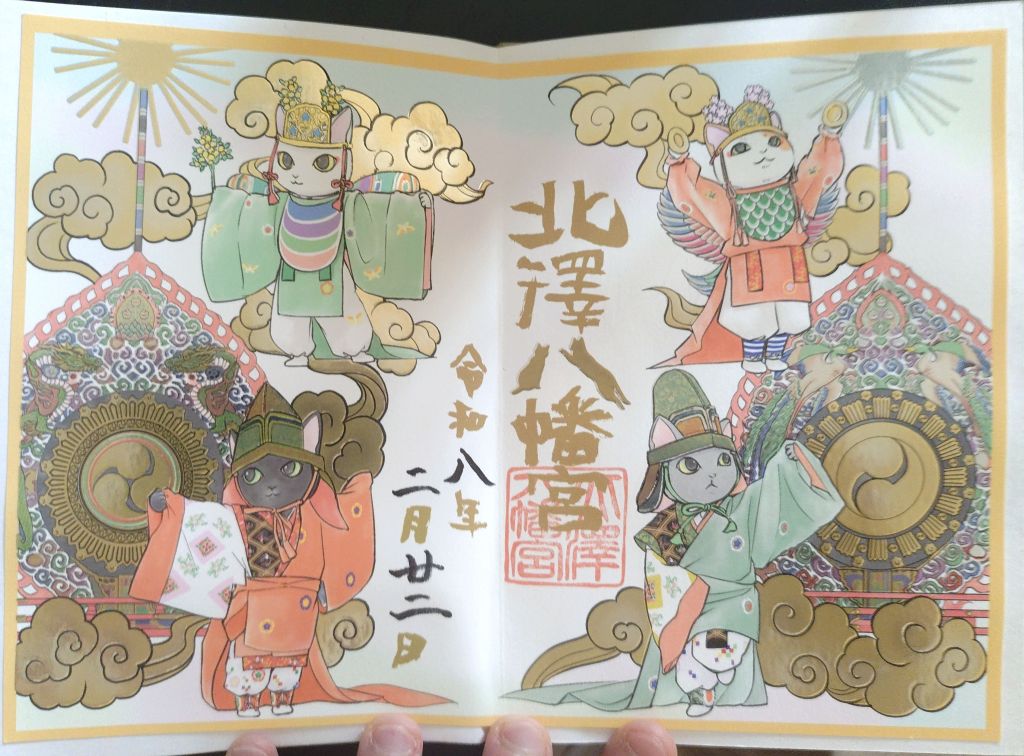 北澤八幡宮
北澤八幡宮
令和八年
二月廿二日